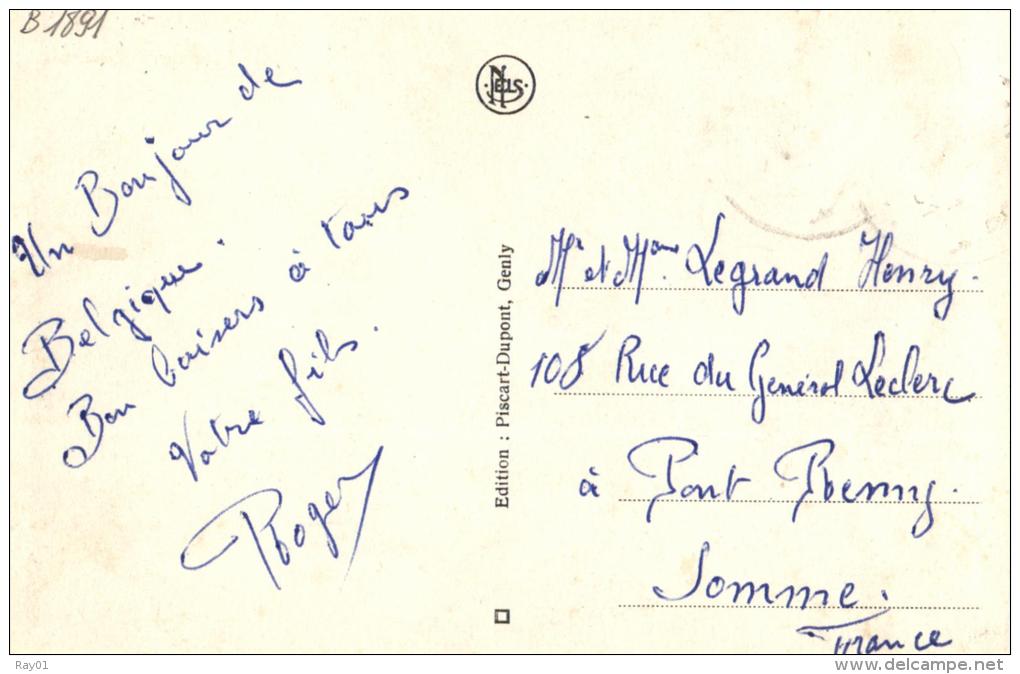 B 1891
Un Bonjour de
Belgique.
Bon baisers à tous
Votre fils.
Roger
NELS
Edition : Piscart-Dupont, Genly
Mr et Mme. Legrand Henry.
108 Rue du Général Leclerc
à Pont Remy.
Somme.
France
Ray01
www.delcampe.net